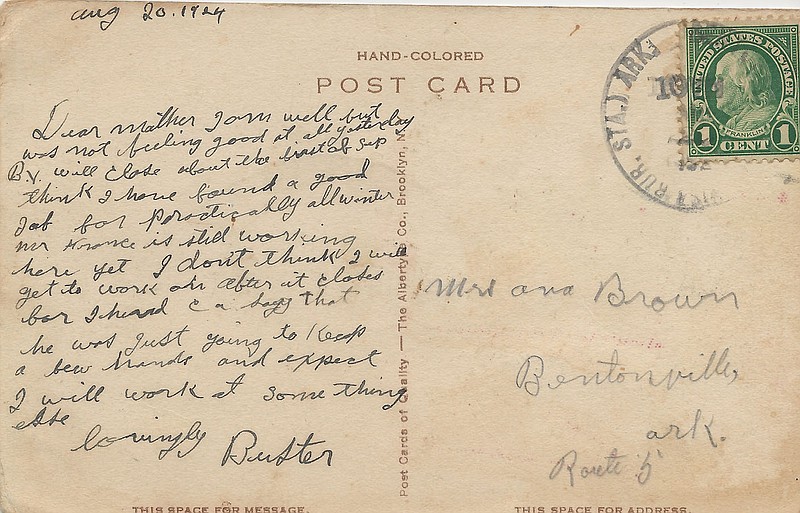 aug 20. 1924
HAND-COLORED
POST CARD
Dear mother I am well but
was not feeling good at all yesterday
B.V. will close about the first of Sep
think I have found a good
Job for practically all winter
mr is still working
here yet I dont think I will
get to work on after it closes
for I heard C a says that
he was just going to Keep
a few hands and expect
I will work at some thing
else
lovingly Buster
Post Cards of Quality — The Albertype Co., Brooklyn, N.
RUR. STA.) ARK.
UNITED STATES POSTAGE
FRANKLIN
1 CENT 1
Mrs ana Brown
Bentonville,
ark.
Route 5
THIS SPACE FOR MESSAGE.
THIS SPACE FOR ADDRESS.